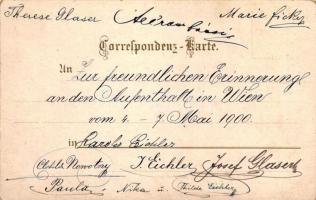 Therese Glaser Marie
Correspondenz-Karte.
An Zur freundlichen Erinnerung
an den Aufenthalt in Wien
vom 4. – 7. Mai 1900.
in
Nowotny J. Eichler Josef Glaser
Paula, Nika u. Thilde Eichler